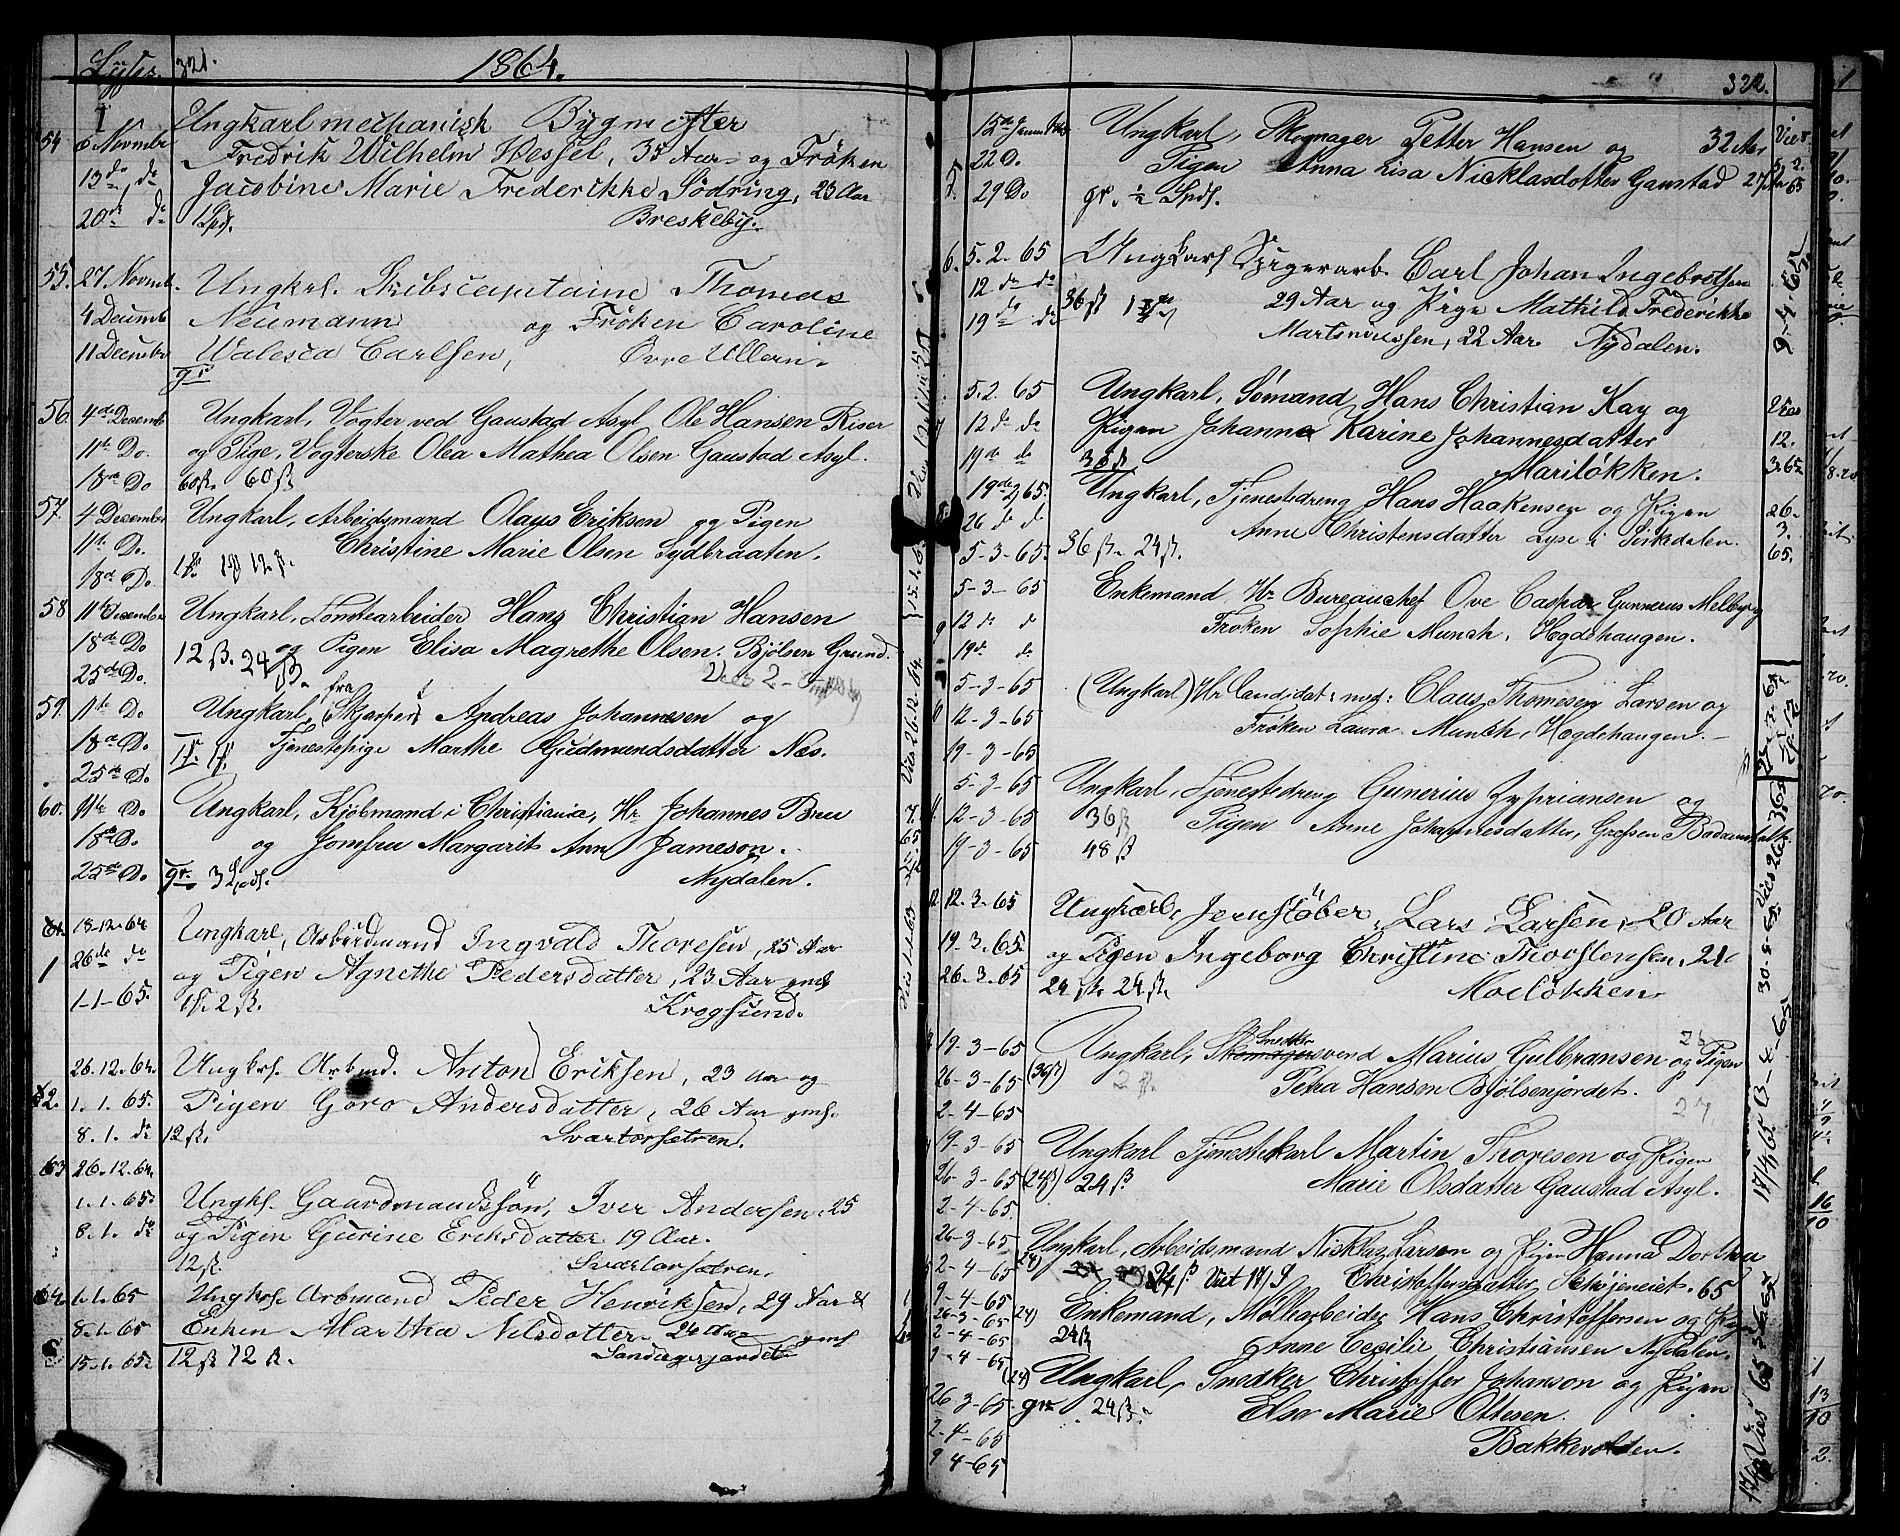 Lysn. 321. 1864.
54 6 Novmbr Ungkarl mechanisk Bygmester
13de do Fredrik Wilhelm Wessel, 35 Aar og Fröken
20de do Jacobine Marie Frederikke Södring, 23 Aar
1 Spd. Breskeby.
55. 27. Novmb. Ungkrl. Skibscapitaine Thomas
4 Decemb Neumann og Fröken Caroline
11 Decembr Walesca Carlsen, Övre Ullern.
gr
56. 4de Decemb Ungkarl, Vogter ved Gaustad Asyl Ole Hansen Riser
11te Do. og Pige, Vogterske Olea Mathea Olsen Gaustad Asyl.
18de Do 60 ß. 60 ß
57. 4 December Ungkarl, Arbeidsmand Olaus Eriksen og Pigen
11te Do. Christine Marie Olsen Sydbraaten.
18de Do 12 ß.
58 11te December Ungkarl, Hans Christian Hansen
18de Do og Pigen Elisa Magrethe Olsen. Bjölsen Grund.
25de Do. 12 ß. 24 ß.
59. 11te Do fra
Ungkarl, Andreas Johannesen og
18de Do Tjenestepige Marthe Gudmundsdatter Næs.
25de Do
60. 11te Do Ungkarl, Kjöbmand i Christiania, Hr. Johannes Bruu
18de Do. og Jomfru Margarit Ann Jameson.
25de Do gr. 3 Spds. Nydalen.
61. 18-12-64 Ungkarl, Arbeidmand Ingvald Thoresen, 25 Aar
26de do og Pigen Agnethe Pedersdatter, 23 Aar
1-1-65. 2 ß. Krogsund.
26.12.64. Ungkrl. Arbmd. Anton Eriksen, 23 Aar og
62. 1.1.65. Pigen Goro Andersdatter, 26 Aar
8.1. do 12 ß. Svartorsetren.
63 26.12.64.
1.1.65. Ungkl. Gaardmandssön, Iver Andersen, 25
8.1. do og Pigen Gurine Eriksdatter 19 Aar.
12 ß. Svartorsetren.
64. 1.1.65 Ungkrl. Arbmand Peder Henriksen, 29 Aar &
8.1.65 Enken Martha Nilsdotter
15.1.65. 12 ß 12 ß.
322.
Ungkarl, Skomager Petter Hansen og 32 Aar
22 D. Pigen Anna Lisa Nicklasdotter Gaustad
5. 29 Do gr. ½ Spds.
6. 5.2.65 Ungkarl Spigerarb. Carl Johan Ingebretsen
12 do do 36 ß 29 Aar og Pige Mathilde Frederikke
19 do do 22 Aar. Nydalen.
9-4-65
5.2.65 Ungkarl, Sömand, Hans Christian Kay og
12 do do Pigen Johanne Karine Johannesdatter
19 de do 36 ß Mariløkken.
19de 2/65. Ungkarl, Tjenestedreng Hans Haakensen og Pigen
26 do d Anne Christensdatter Lyse i Sørkdalen.
5-3-65. 36 ß. 24 ß.
26. 3. 65.
5-3-65 Enkemand, Hr. Bureauchef Ove Caspar Gunnerus Melby og
12 do d Frøken Sophie Munch, Hegdehaugen.
19de do
5-3-65 (Ungkarl) Hr. Candidat: med: Claus Thomesen Larsen og
12-3-65 Frøken Laura Munch, Hegdehaugen.
19-3-65
5-3-65 Ungkarl, Tjenestedreng Gunerius Zyprianen og
12-3-65 36 ß Pigen Anne Johannesdatter,
19-3-65 48 ß
12. 12.3.65 Ungkarl, Jernstöber, Lars Larsen, 20 Aar
19.3.65. og Pigen Ingeborg Christine Thorstensen, 21
26.3.65 24 ß. 24 ß. Moeløkken.
19-3-65 Ungkarl, Skomagersvend Marius Gulbransen og Pigen
26-3-65 (36 ß) Petra Hansen Bjölsenjordet.
2-4-65
19-3-65 Ungkarl Tjenestekarl Martin Thoresen og Pigen
26-3-65 (24 ß) 24 ß Marie Olsdatter Gaustad Asyl.
2-4-65.
26-3-65 Ungkarl, Arbeidsmand Nicklas Larsen og Pigen Hanna Dorthea
2-4-65 24 ß Viet 17/9 Christoffersdatter 65
9-4-65
26-3-65 (24) Enkemand, Möllearbeider Hans Christoffersen og Pigen
2-4-65 24 ß Anne Cecilie Christiansen Nydalen.
9-4-65 (24) Ungkarl, Snedker Christoffer Johanson og Pigen
26-3-65. gr 24 ß. Else Marie Ottesen.
2-4-65 Bakkevolden.
9 4-65